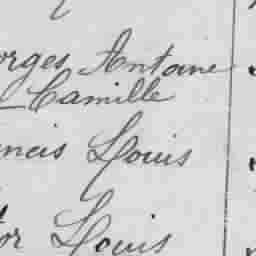 orges Antoine
Camille
ncis Louis
or Louis